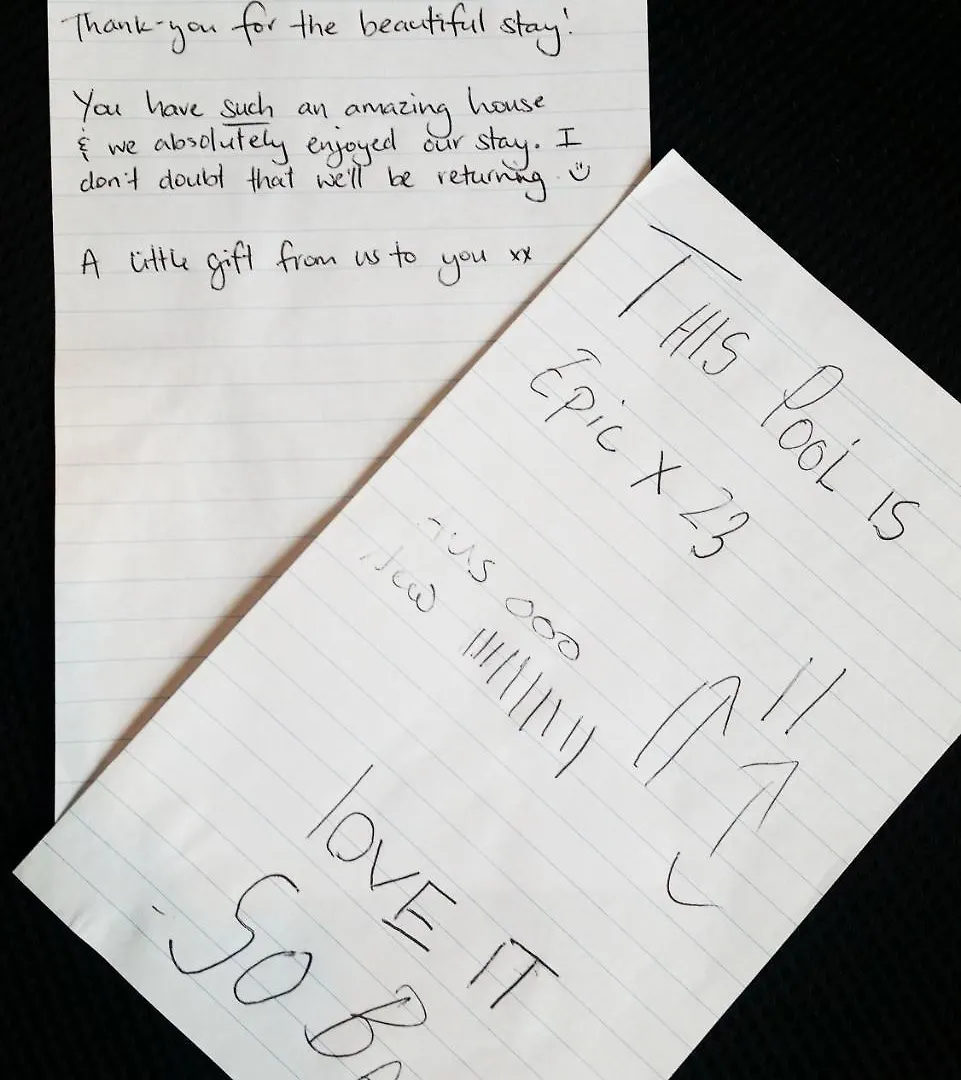 Thank-you for the beautiful stay!
You have such an amazing house
& we absolutely enjoyed our stay. I
don't doubt that we'll be returning :)
A little gift from us to you xx
THIS Pool IS
Epic X 23
ooo
lOVE IT
SO